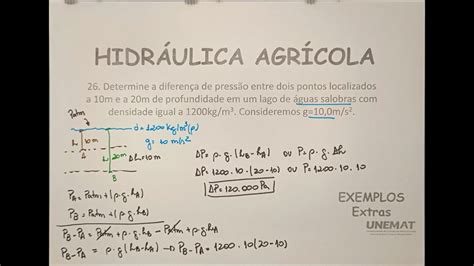 HIDRÁULICA AGRÍCOLA
26. Determine a diferença de pressão entre dois pontos localizados
a 10m e a 20m de profundidade em um lago de águas salobras com
densidade igual a 1200kg/m³. Consideremos g=10,0m/s².
Patm
d=1200kg/m³(ρ)
g=10 m/s²
h 10m
h 20m Δh=10m
A
B
ΔP=ρ.g.(hB-hA) ou P=ρ.g.Δh
ΔP=1200.10.(20-10) ou P=1200.10.10
ΔP=120.000Pa
PA=Patm+(ρ.g.hA)
PB=Patm+(ρ.g.hB)
PB-PA=Patm+ρ.g.hB-Patm+ρ.g.hA
PB-PA=ρ.g(hB-hA)→PB-PA=1200.10(20-10)
EXEMPLOS
Extras
UNEMAT